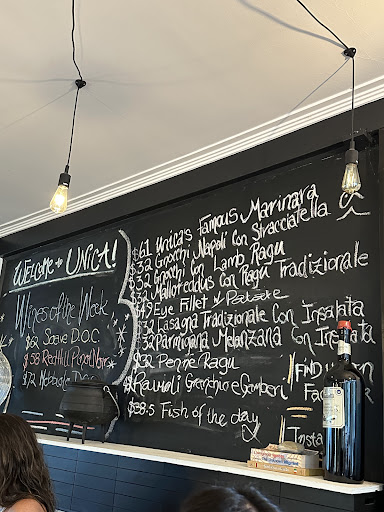 WELCOME to UNICA!
Wines of the Week
$62 Soave D.O.C.
$58 Red Hill Pinot Noir
$72 Nebbiolo D.O.C.
$61 Unica's Famous Marinara
$32 Gnocchi Napoli Con Stracciatella
$32 Gnocchi Con Lamb Ragu
$32 Malloreddus con Ragu Tradizionale
$49 Eye Fillet &
$32 Lasagna Tradizionale Con Insalata
$32 Parmigiana Melanzana Con Insalata
$32 Penne Ragu
Ravioli Granchio e Gamberi
$38.5 Fish of the day
FIND
Fa
Insta